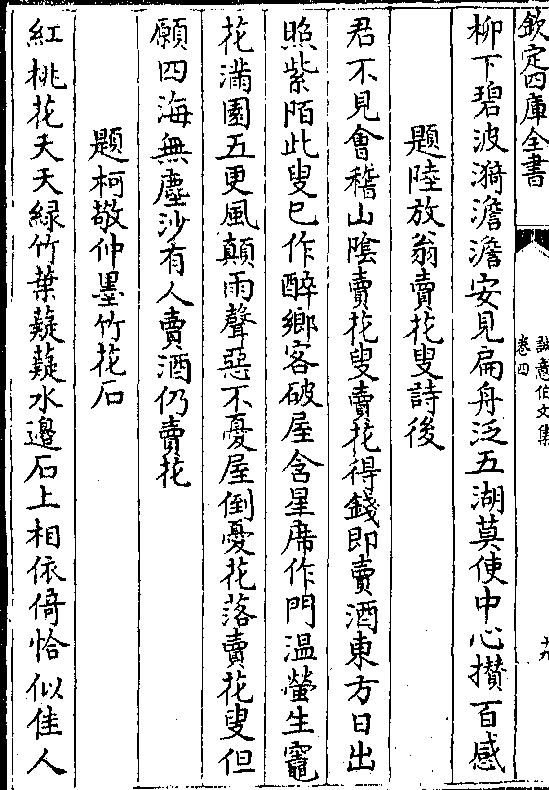 欽定四庫全書
誠意伯文集
卷四
柳下碧波漪澹澹安見扁舟泛五湖莫使中心攅百感
題陸放翁賣花叟詩後
君不見會稽山陰賣花叟賣花得錢即賣酒東方日出
照紫陌此叟已作醉鄉客破屋含星席作門溫螢生竈
花滿園五更風顛雨聲惡不憂屋倒憂花落賣花叟但
願四海無塵沙有人賣酒仍賣花
題柯敬仲墨竹花石
紅桃花夭夭緑竹葉薿薿水邊石上相依倚恰似佳人